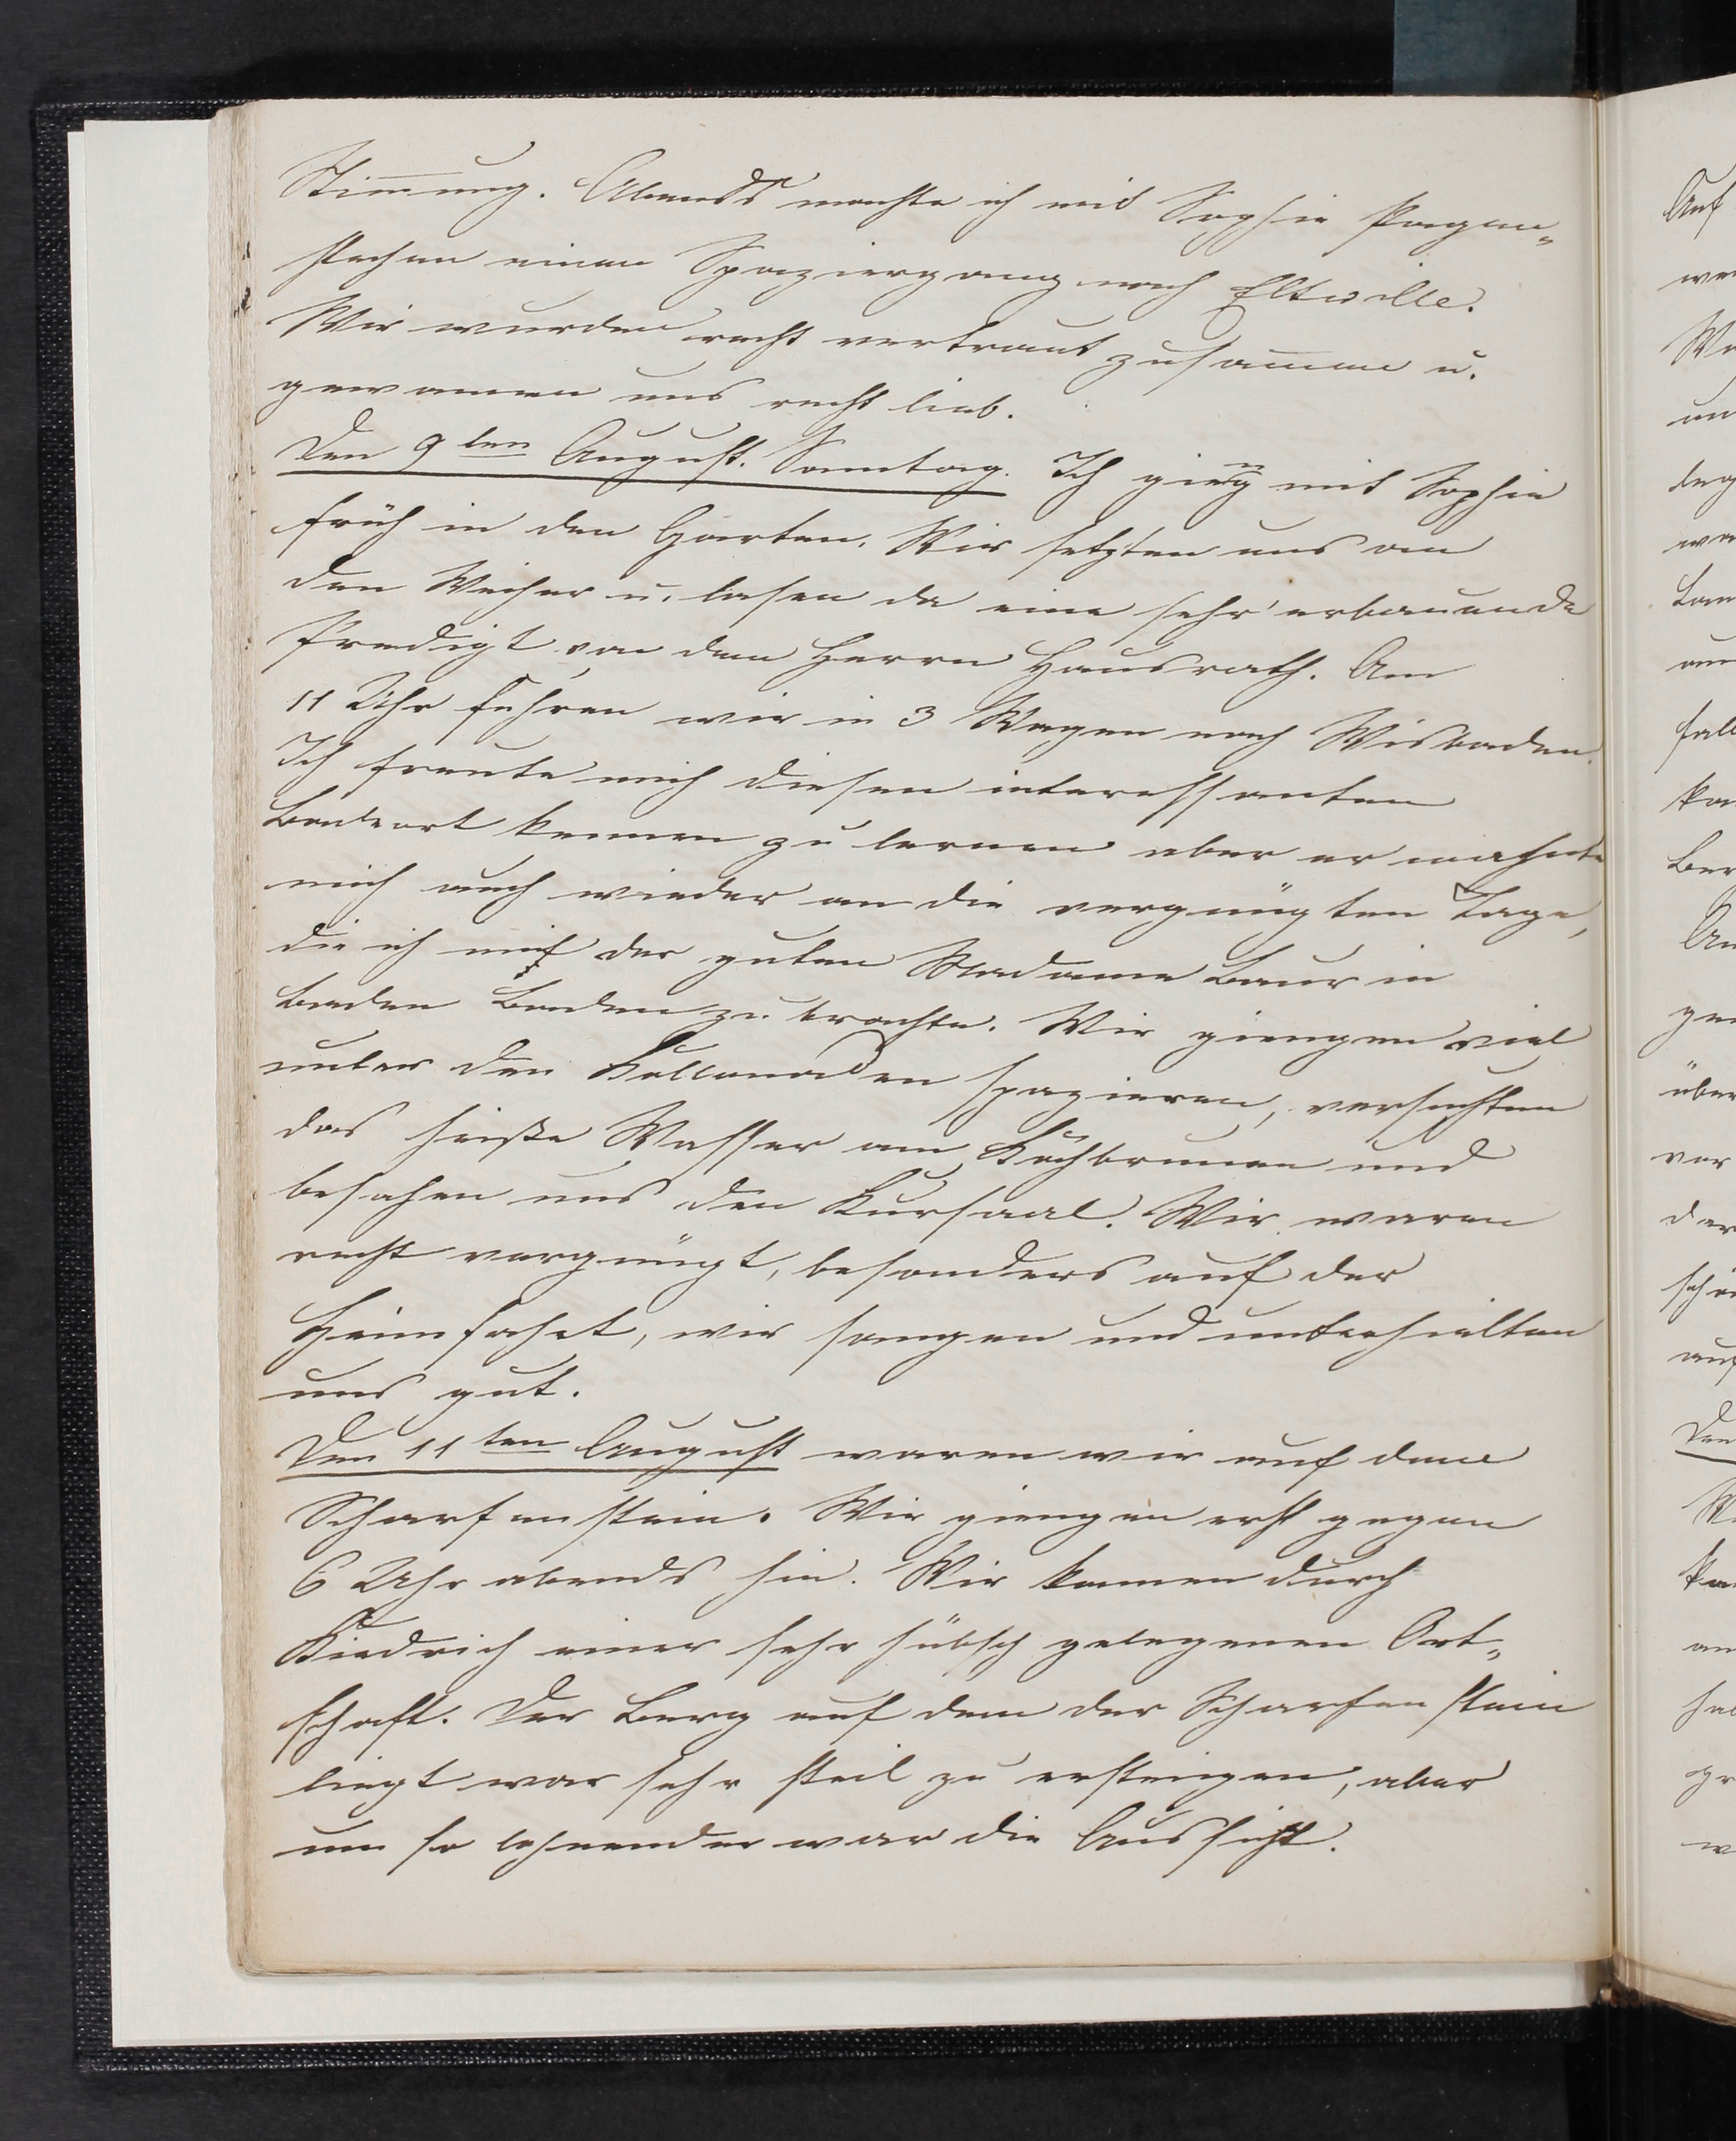 Stimmung. Abends machte ich mit Sophie Pagen„
stecher einen Spaziergang nach Eltville.
Wir wurden recht vertraut zusammen u.
gewannen uns recht lieb.
Den 9ten August. Sonntag. Ich gieng mit Sophie
früh in den Garten. Wir setzten uns an
den Weiher u. lasen da eine sehr erbauende
Predigt von dem Herrn Hausrath. Um
11 Uhr fuhren wir in 3 Wagen nach Wisbaden.
Ich freute mich diesen interessanten
Badeort kennen zu lernen aber er mahnte
mich auch wieder an die vergnügten Tage,
die ich mit der guten Madame Baur in
Baden Baden zu brachte. Wir giengen viel
unter den Kollonaden spazieren, versuchten
das heiße Wasser am Kochbrunnen und
besahen uns den Kursaal. Wir waren
recht vergnügt, besonders auf der
Heimfahrt, wir sangen und unterhielten
uns gut.
Den 11ten August waren wir auf dem
Scharfenstein. Wir giengen erst gegen
6 Uhr abends hin. Wir kamen durch
Kiedrich einer sehr hübsch gelegenen Ort„
schaft. Der Berg auf dem der Scharfenstein
liegt war sehr steil zu ersteigen, aber
um so lohnender war die Aussicht.